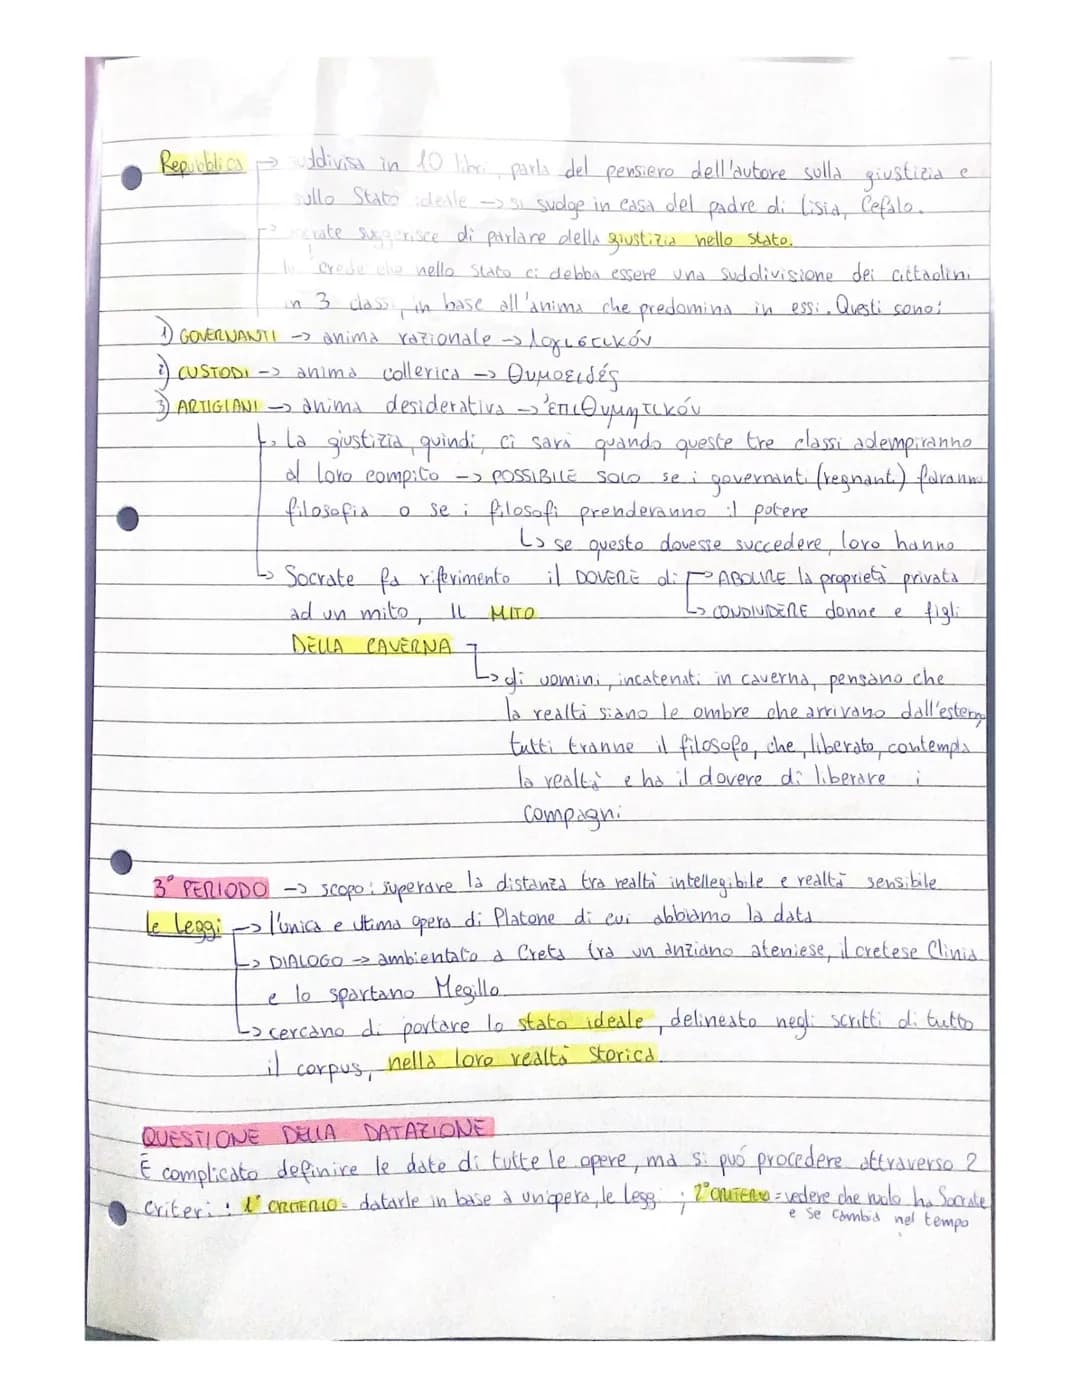 Repubblica → suddivisa in 10 libri, parla del pensiero dell'autore sulla giustizia e
sullo Stato ideale → si svolge in casa del padre di Lisia, Cefalo.
→ suggerisce di parlare della giustizia nello stato.
crede che nello Stato ci debba essere una suddivisione dei cittadini
in 3 classi, in base all'anima che predomina in essi. Questi sono:
1) GOVERNANTI → anima razionale → λογιστικόν
2) CUSTODI → anima collerica → θυμοειδές
3) ARTIGIANI → anima desiderativa → ἐπιθυμητικόν
↳ La giustizia, quindi, ci sarà quando queste tre classi adempiranno
al loro compito → POSSIBILE SOLO se i governanti (regnanti) faranno
filosofia o se i filosofi prenderanno il potere
↳ se questo dovesse succedere, loro hanno
il DOVERE di → ABOLIRE la proprietà privata
↳ CONDIVIDERE donne e figli
↳ Socrate fa riferimento
ad un mito, IL MITO
DELLA CAVERNA
↳ gli uomini, incatenati in caverna, pensano che
la realtà siano le ombre che arrivano dall'esterno
tutti tranne il filosofo, che, liberato, contempla
la realtà e ha il dovere di liberare i
compagni
3° PERIODO → scopo: superare la distanza tra realtà intellegibile e realtà sensibile
le Leggi → l'unica e ultima opera di Platone di cui abbiamo la data
↳ DIALOGO → ambientato a Creta tra un anziano ateniese, il cretese Clinia
e lo spartano Megillo
↳ cercano di portare lo stato ideale, delineato negli scritti di tutto
il corpus, nella loro realtà storica.
QUESTIONE DELLA DATAZIONE
È complicato definire le date di tutte le opere, ma si può procedere attraverso 2
criteri: 1° CRITERIO = datarle in base a un'opera, le leggi; 2° CRITERIO = vedere che ruolo ha Socrate
e se cambia nel tempo